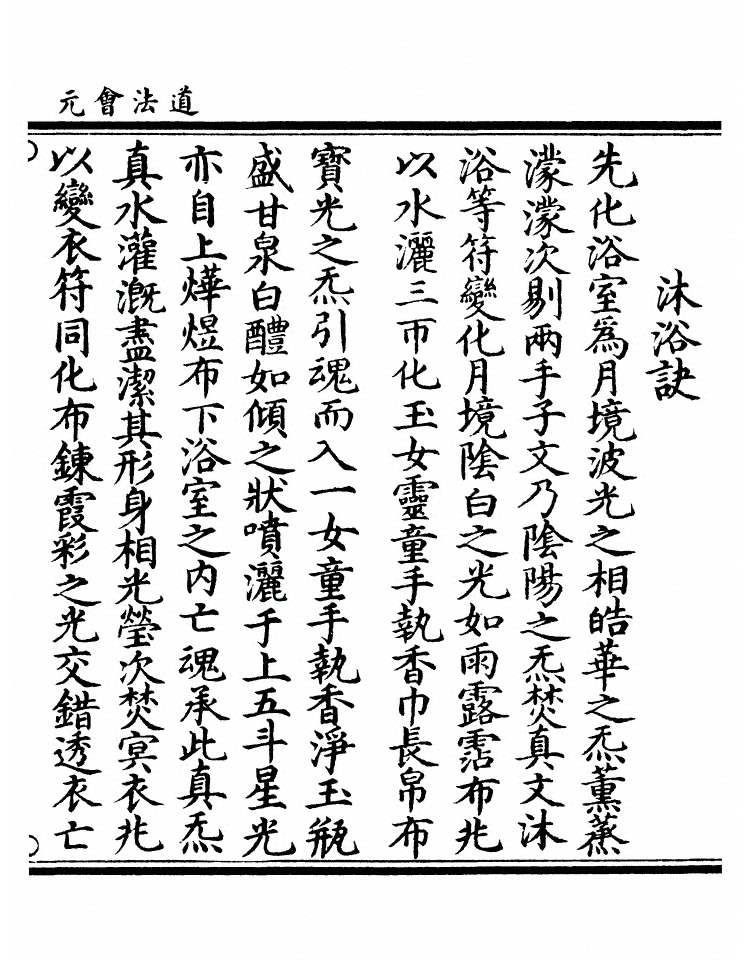 道法會元
沐浴訣
先化浴室爲月境波光之相皓華之炁薰蒸
濛濛次剔兩手子文乃陰陽之炁焚真文沐
浴等符變化月境陰白之光如雨露霑布兆
以水灑三帀化玉女靈童手執香巾長帛布
寶光之炁引魂而入一女童手執香淨玉瓶
盛甘泉白醴如傾之狀噴灑于上五斗星光
亦自上燁煜布下浴室之内亡魂承此真炁
真水灌溉盡潔其形身相光瑩次焚冥衣兆
以變衣符同化布鍊霞彩之光交錯透衣亡